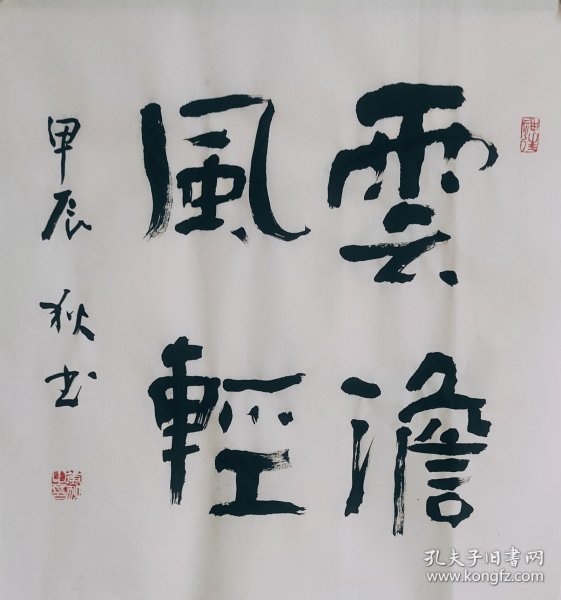 雲澹
風輕
甲辰 狄书
孔夫子旧书网
www.kongfz.com